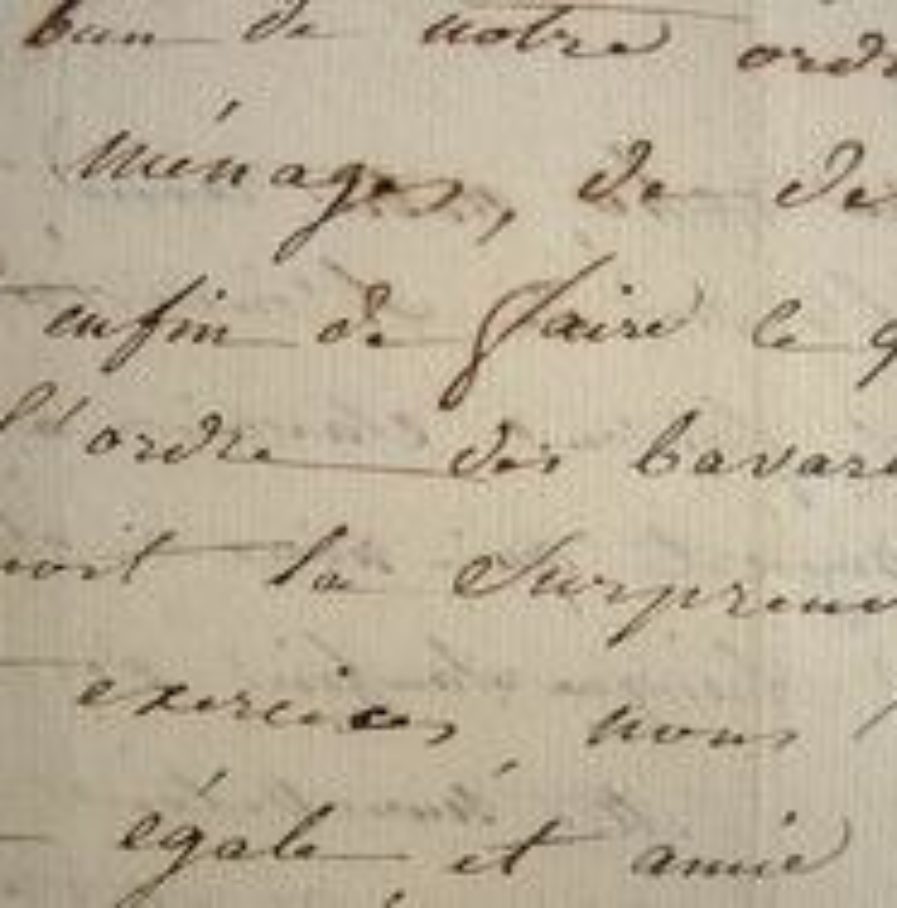 ban de notre ordr
ménages, de de
enfin de faire ce q
l'ordre des bavar
soit la Surpren
exercices, nous
égale et amie